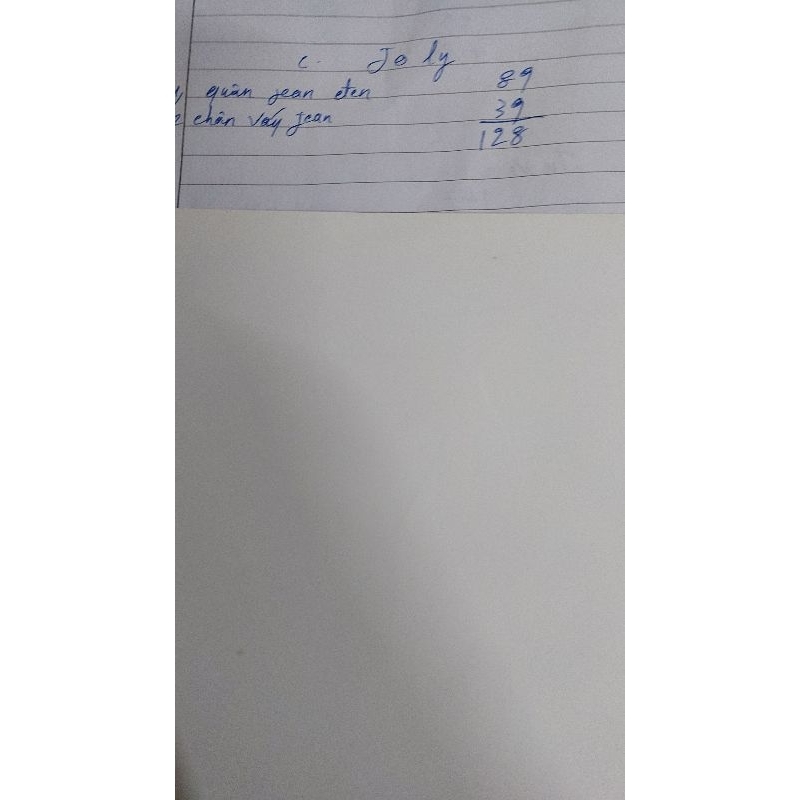 c. Jo ly
1, quần jean đen 89
2 chân váy jean 39
128